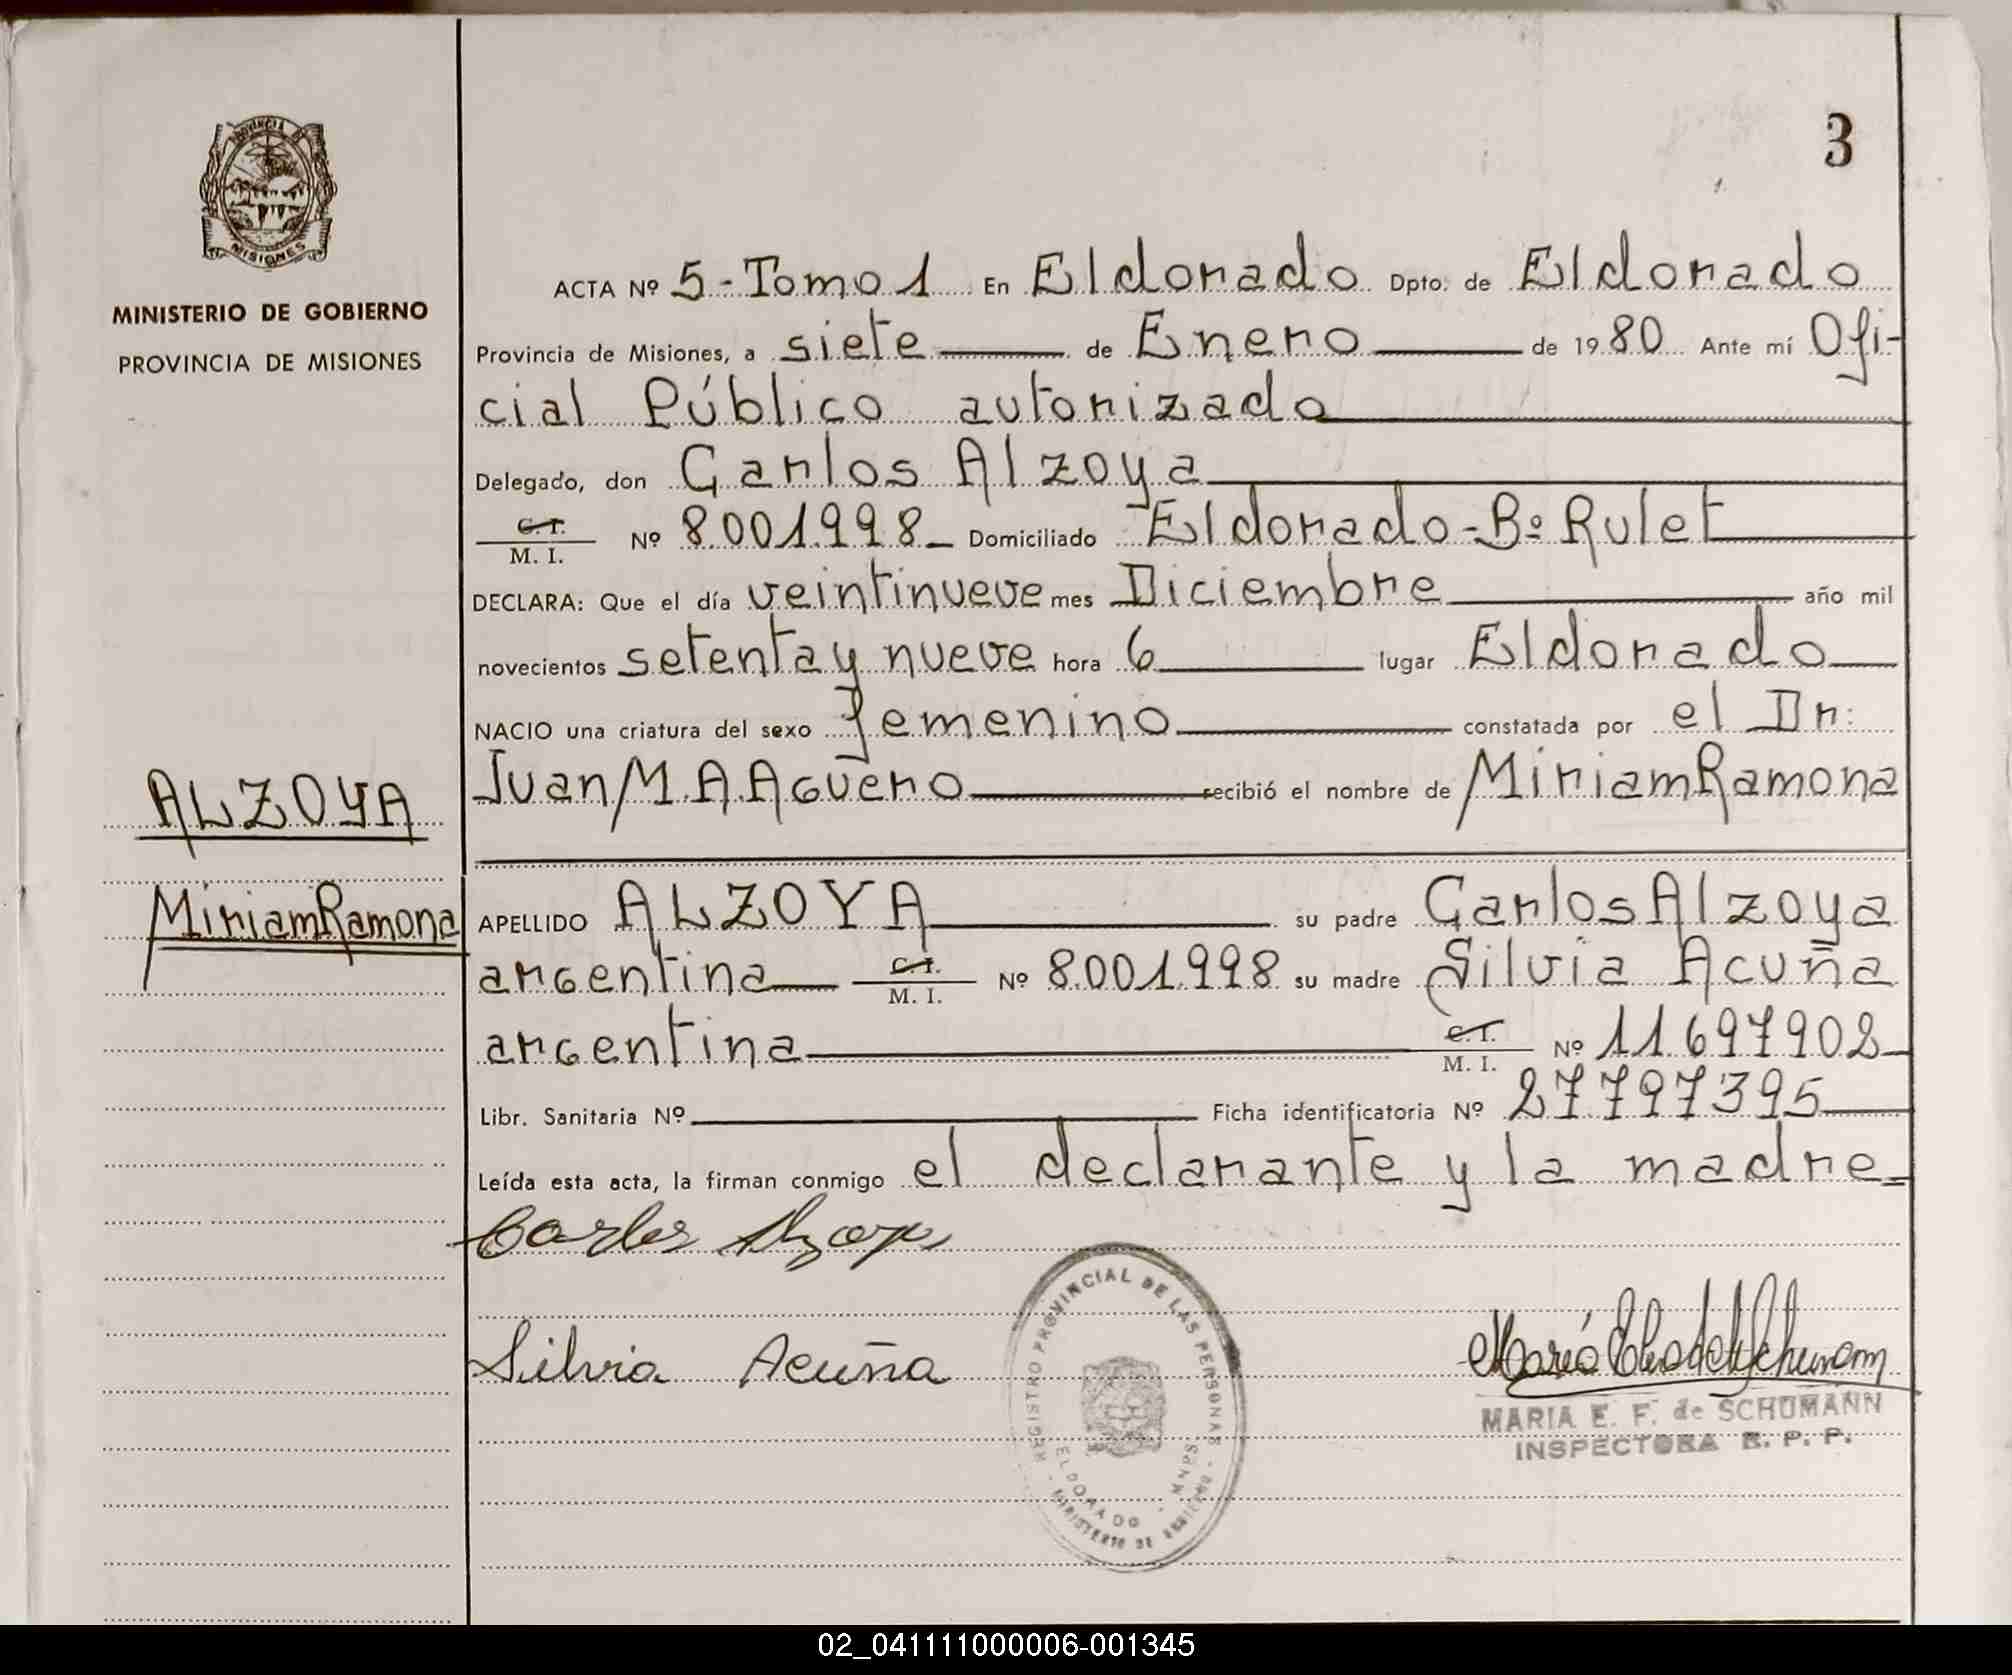 3
PROVINCIA DE
MISIONES
MINISTERIO DE GOBIERNO
PROVINCIA DE MISIONES
ACTA Nº 5-Tomo 1 En Eldorado Dpto. de Eldorado
Provincia de Misiones, a siete de Enero de 1980 Ante mí Ofi-
cial Público autorizado
Delegado, don Carlos Alzoya
C.I.
M. I. Nº 8.001.998 Domiciliado Eldorado-Bº Rulet
DECLARA: Que el día veintinueve mes Diciembre año mil
novecientos setenta y nueve hora 6 lugar Eldorado
NACIO una criatura del sexo femenino constatada por el Dr:
Juan M.A.Aguero recibió el nombre de Miriam Ramona
ALZOYA
Miriam Ramona
APELLIDO ALZOYA su padre Carlos Alzoya
argentina C.I.
M. I. Nº 8.001.998 su madre Silvia Acuña
argentina C.I.
M. I. Nº 11.697.902
Libr. Sanitaria Nº Ficha identificatoria Nº 27797395
Leída esta acta, la firman conmigo el declarante y la madre=
Carlos Alzoya
Silvia Acuña
REGISTRO PROVINCIAL DE LAS PERSONAS
ELDORADO - MNES
MINISTERIO DE GOBIERNO
MARIA E. F. de SCHUMANN
INSPECTORA R. P. P.
02_041111000006-001345